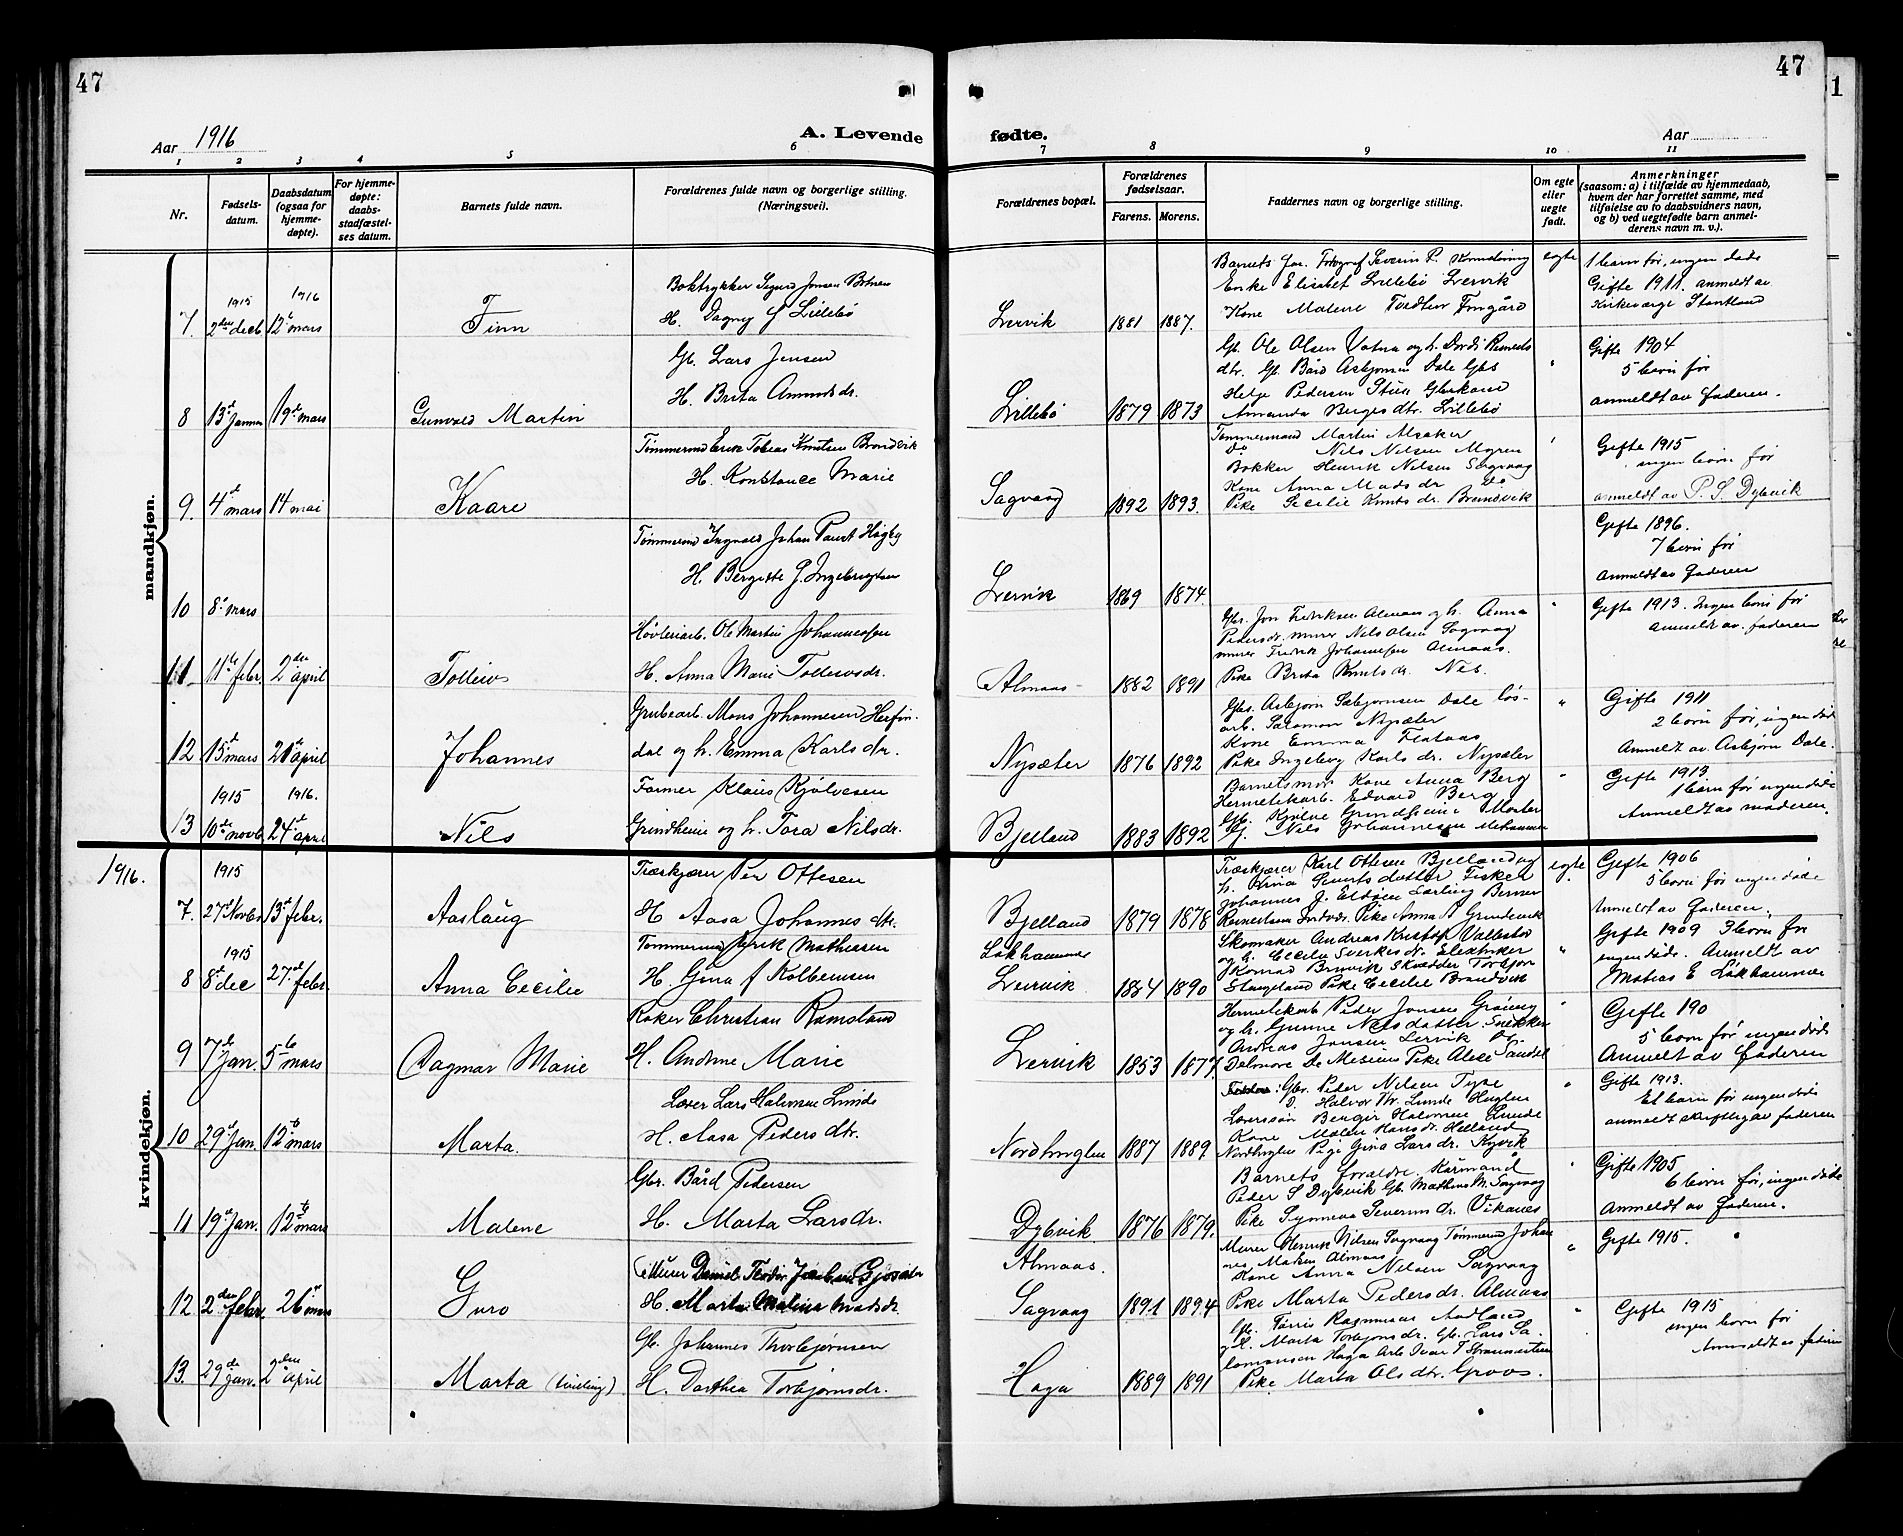 47
47
1
Aar 1916
A. Levende
fødte.
Aar
1 2 3 4 5 6 7 8 9 10 11
Nr.
Fødsels-
datum.
Daabsdatum
(ogsaa for
hjemme-
døpte).
For hjemme-
døpte:
daabs-
stadfæstel-
ses datum.
Barnets fulde navn.
Forældrenes fulde navn og borgerlige stilling.
(Næringsvei).
Forældrenes bopæl.
Forældrenes
fødselsaar.
Farens. Morens.
Faddernes navn og borgerlige stilling.
Om egte
eller
uegte
født.
Anmerkninger
(saasom: a) i tilfælde av hjemmedaab,
hvem der har forrettet samme, med
tilføielse av to daabsvidners navn,
og b) ved uegtefødte barn anmel-
derens navn m. v.).
mandkjøn.
1915 1916
7. 2den decb 12te mars Finn
Boktrykker Sigurd Jensen Botnen
H. Dagny J Lillebø
Lervik 1881 1887.
Barnets far. Fotograf Severin P.
Enke Elisabet Lillebø Lervik
Kone Malene
egte
1 barn før, ingen døde
Gifte 1911. anmeldt av
Kirkeverge Stautland
8 13de Januar 19de mars Gunvald Martin
Gb. Lars Jensen
H. Brita Amundsdr.
Lillebø 1879 1873
Gb. Ole Olsen Vatna og h. Dordi
dtr. Gb. Bård Asbjørnsen Dale Gbs
Helge Pedersen Stue
Amanda Berges dtr. Lillebø
Gifte 1904
5 børn før
anmeldt av faderen.
9. 4de mars 14 mai Kaare
Tømmermd Erik Tobias Knutsen Brandvik
H. Konstance Marie
Sagvaag 1892 1893.
Tømmermand Martin Alsaker
Do Nils Nilsen Myren
Bøkker Henrik Nilsen Sagvaag
Kone Anna Madsdr Do
Pike Secilie Knuts dr. Brandvik
Gifte 1915
ingen børn før
anmeldt av P. S. Dybvik
10 8de mars
Tømmermd Ingvald Johan Høgby
H. Bergitte J. Ingebrigtsen
Lervik 1869 1874.
Gifte 1896.
7 børn før
Anmeldt av Faderen
11 11te febr. 2den april Tolleiv
Høvleriarb. Ole Martin Johannesen
H. Anna Marie Tolleivsdr.
Almaas 1882 1891
Gbr. Jon Fredriksen Almaas og h. Anna
Pedersdr. murer Nils Olsen Sagvaag
murer Fredrik Johannesen Almaas.
Pike Brita Knutsdr. Nes.
Gifte 1913. Ingen børn før
Anmeldt av. faderen
12 15de mars 20de april Johannes
Grubearb. Mons Johannesen Herfin-
dal og h. Emma Karlsdr.
Nysæter 1876 1892
Gbr. Asbjørn Sæbjørnsen Dale løs-
arb. Salomon Nysæter
Kone Emma Flataas
Pike Ingeborg Karls dr. Nysæter
Gifte 1911
2 børn før, ingen døde
Anmelt av Asbjørn Dale.
1915 1916.
13 10de novb 24de april Nils
Farmer Klaus Kjølvesen
Grindheim og h. Tora Nilsdr.
Bjelland 1883 1892
Barnetsmor Kone Anna Berg
Hermetikarb. Edvard Berg
Gb. Kjølve Grindheim Moster
Gj. Nils Johannesen
Gifte 1913
1 børn før ingen døde
Anmeldt av moderen.
1916.
kvindekjøn.
1915
7. 27de Novbr 13de febr. Aaslaug
Træskjærer Per Ottesen
H Aasa Johannes dtr.
Bjelland 1879 1878
Træskjærer Karl Ottesen Bjelland og
h. Anna Sjurts datter Fisker
Johannes J. Eldøen Lærling Berner
egte.
Gifte 1906
5 børn før ingen døde
Anmeldt av faderen.
1915
8 8de dec 27de febr. Anna Cecilie
Tømmermd Erik Mathiesen
H. Gina f Kolbeinsen
Løkhammer
Leirvik 1884 1890
Skomaker Andreas Kristof Vallestad
og h. Cecilie Elektriker
Konrad Brinvik Skrædder Torbjørn
Stangeland Pike Cecilie Brandvik
Gifte 1909 3 børn før
ingen døde. Anmeldt av
Matias E Løkhammer
9 7de Jan. 5te mars Dagmar Marie
Baker Christian Ramsland
H. Andrine Marie
Lervik 1853 1877.
Hermetikarb Peder Jonsen
og h. Gunne Nilsdatter. Snekker
Andreas Jonsen Lervik Do
Gifte 190
5 børn før ingen døde
Anmelt av faderen
10 29de Jan. 12te mars Marta.
Lærer Lars Halvorsen Lunde
H. Aasa Pedersdtr.
Nordhuglen 1887 1889.
Gbr. Peder Nilsen Tyse
D. Halvor Lunde Huglen
Lærerson Bengir Halvorsen Lunde
Kone Malen Hansdr. Helland
Nordhuglen Pige Gina Larsdr. Kyvik
Gifte 1913.
Et barn før ingen døde
anmeldt skriftlig av faderen
11 19de Jan. 12te mars Malene
Gbr. Bård Pedersen
H. Marta Larsdr.
Dybvik 1876 1879.
Barnets forældre. Kårmand
Peder S Dybvik Gb. Mathias M. Sagvaag
Pike Synneva Severins dr. Vikanes
Gifte 1905
6 børn før, ingen døde
Anmeldt av faderen.
12. 2den febr. 26de mars Guro
Murer Daniel Teodor Gjøsæter
H. Marta Malina Madsdr.
Almaas.
Sagvaag 1891 1894
Murer Henrik Nilsen Sagvaag Tømmermd Johan
nes Madsen Almaas
Kone Anna Nilsen Sagvaag
Pike Marta Pedersdr. Almaas
Gifte 1915.
13. 29de Jan. 2den april Marta (tvilling)
Gb. Johannes Thorbjørnsen
H. Dorthea Torbjørnsdr.
Haga 1889 1891
Gb. Tørris Rasmussen Aadland
og h. Marta Torbjørnsdr. Gb. Lars Sa-
lomonsen Haga Arb Ivar T Straumsteen
Pike Marta Olsdtr. Groos.
Gifte 1915
ingen børn før
Anmeldt av faderen